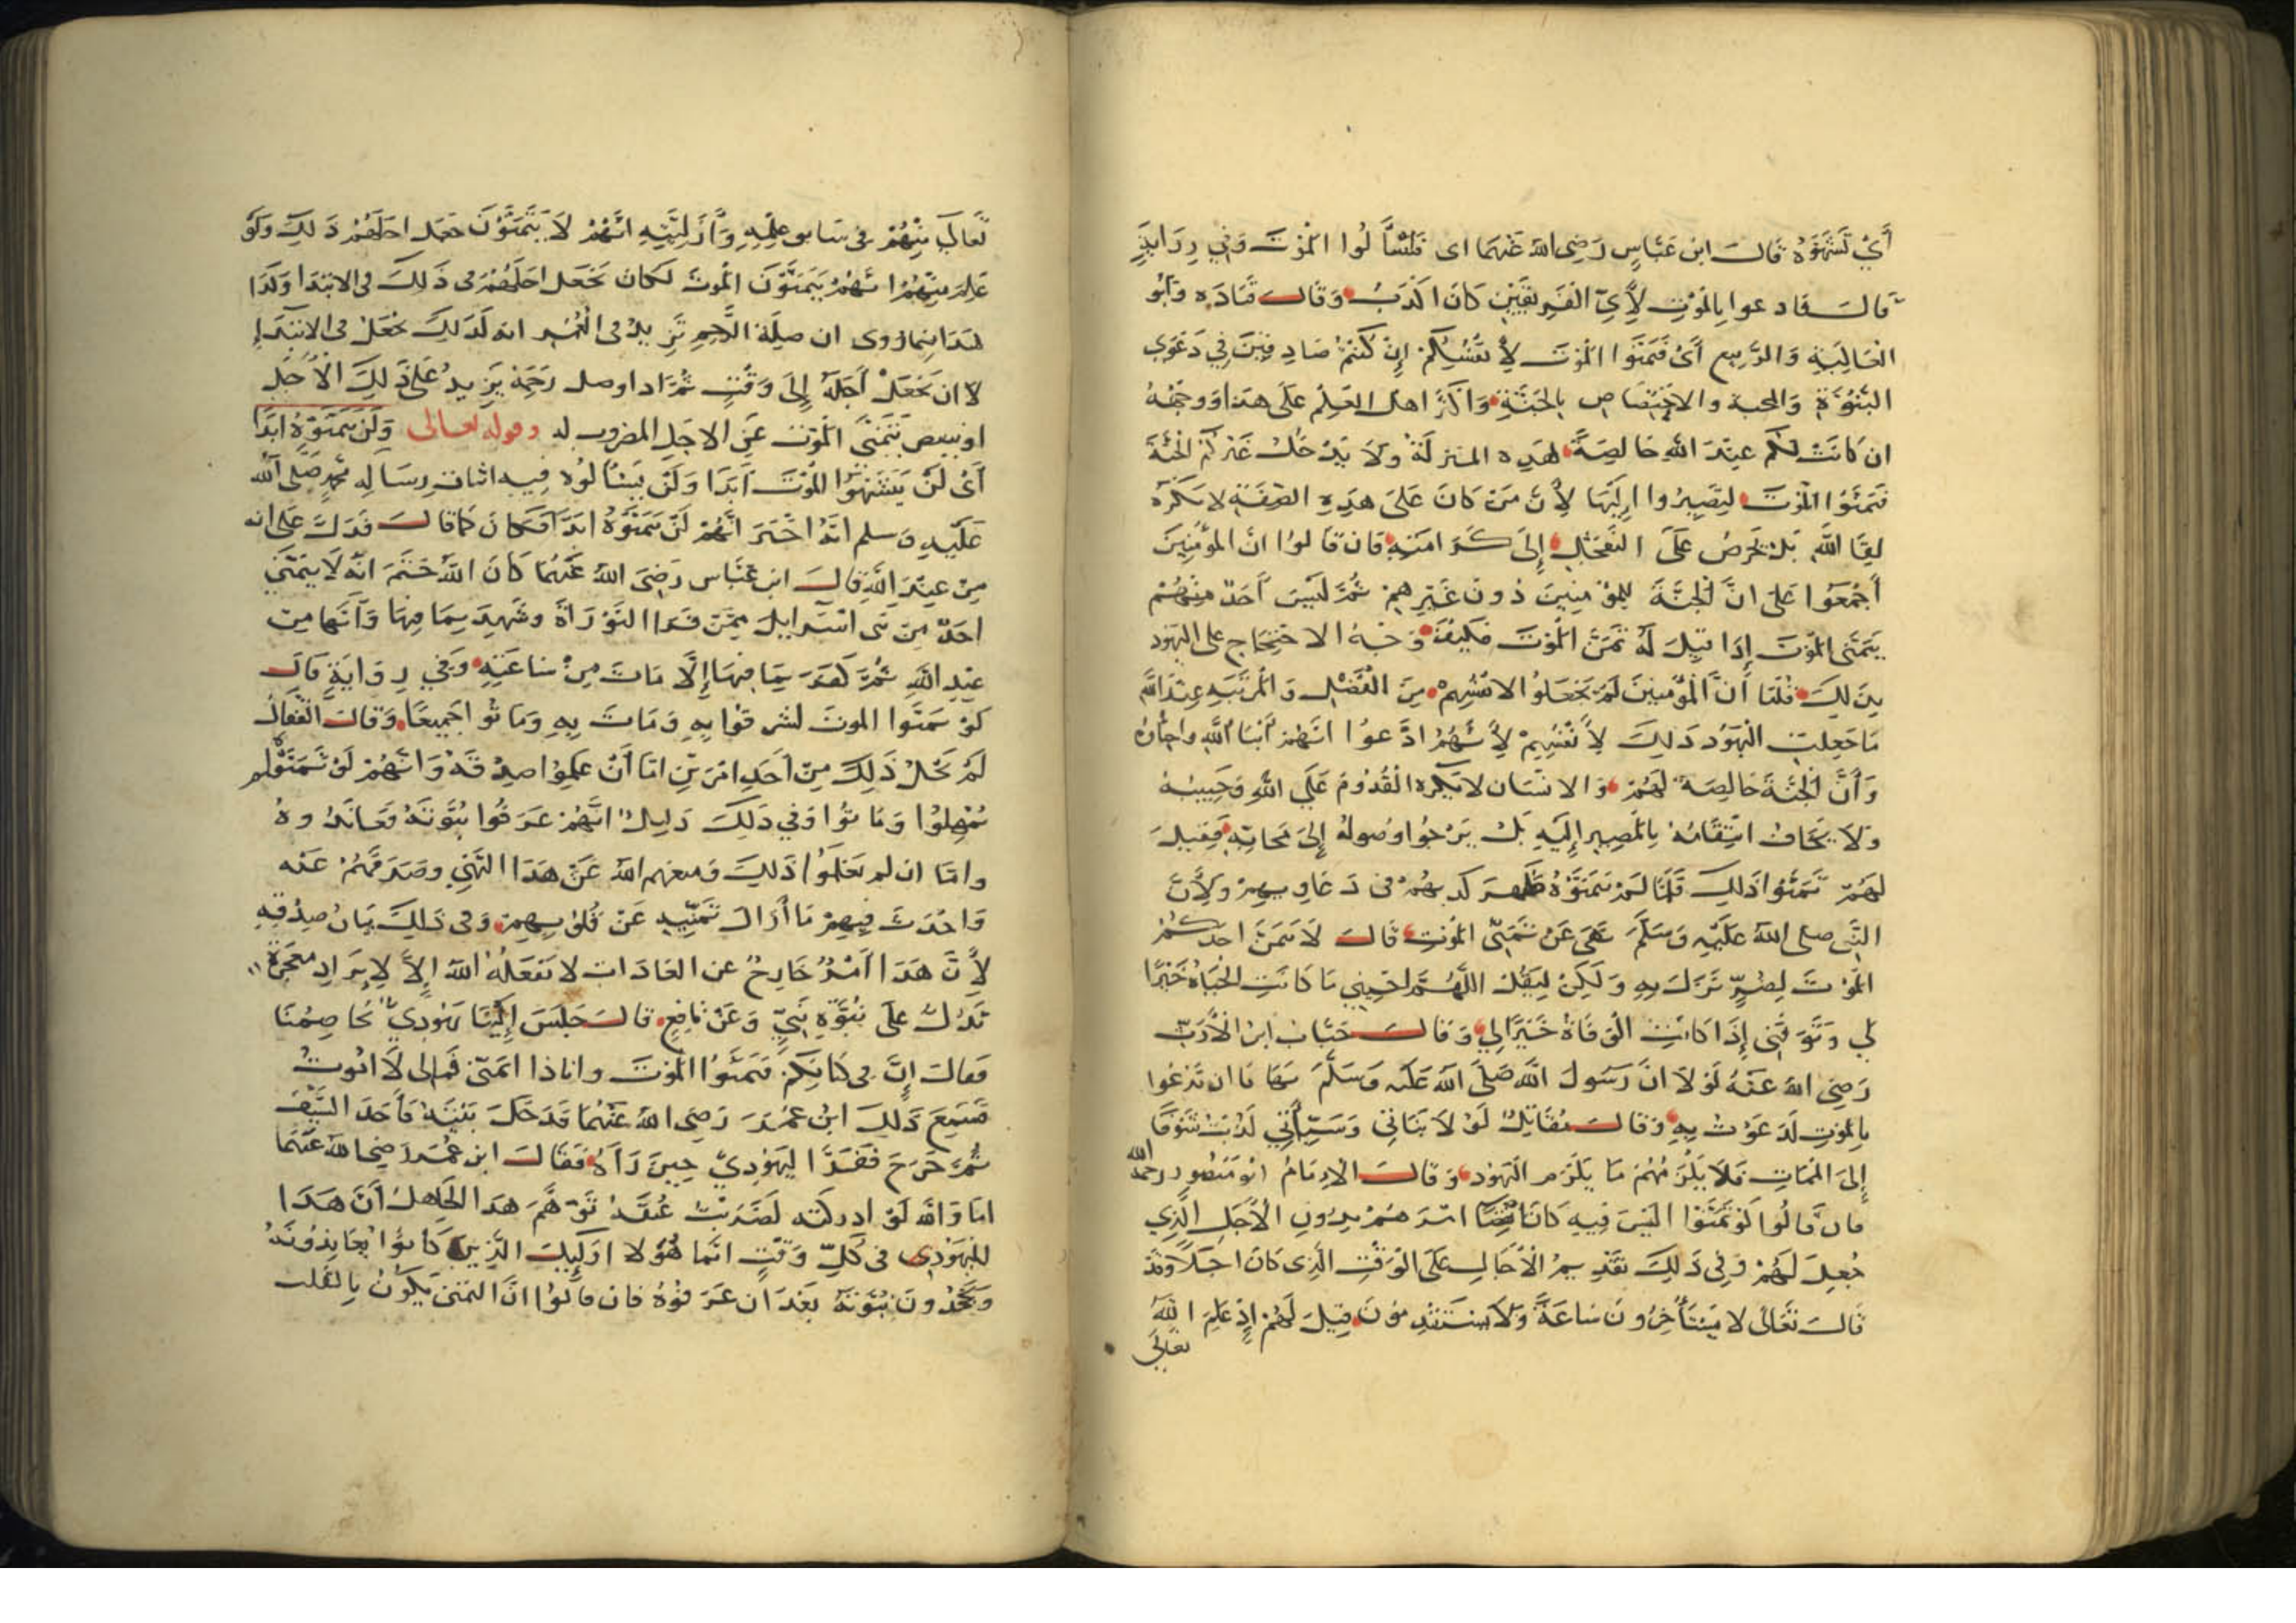 أَيْ تَشَهَّوْهُ قَالَ ابن عَبَّاسٍ رَضِى الله عَنهمَا اى فَلْتَسْأَلُوا الْمَوْتَ وَفِي رِوَايَةٍ
قَالَ فادعوا بِالْمَوْتِ لِأَيِّ الْفَرِيقَيْنِ كَانَ اكْذَبُ وَقَالَ قَتَادَه وَأَبُو
الْعَالِيَةِ وَالرَّبِيعِ أَىْ فَتَمَنَّوَا الْمَوْتَ لِأَنْفُسِكُمْ إِنْ كُنْتُمْ صَادِقِينَ فِي دَعْوَى
الْبُنُوَّةِ وَالمحبة والاخْتِصَاصِ بِالْجَنَّةِ وَأَكْثَرُ اهل الْعِلْمِ عَلَى هَذا وَوجهُهُ
ان كَانَتْ لَكُم عِنْدَ اللهِ خَالِصَةً هَذِه المنزلَةُ وَلَا يَدْخُلُ غَيْرُكُمْ الْجَنَّةَ
فَتَمَنَّوُا الْمَوْتَ لِتَصِيرُوا إِلَيْهَا لِأَنَّ مَنْ كَانَ عَلَى هَذِهِ الصِّفَةِ لَا يَكْرَه
لِقَا اللَّهِ بَلْ يَحْرِصُ عَلَى التَّعَجُّلِ إِلَى كَرَامَتِهِ فَان قَالوُا انَّ الْمُؤْمِنِينَ
أَجْمَعُوا عَلى انَّ الْجَنَّةَ لِلْمُؤْمِنِينَ دُونَ غَيْرِهِمْ ثُمَّ لَيْسَ أَحَدٌ مِنْهُمْ
يَتَمَنَّى الْمَوْتَ إِذَا قِيلَ لَهُ تَمَنَّ الْمَوْتَ فَكَيْفَ وَجْهُ الاحْتِجَاجِ على الْيَهُود
بِذَلِكَ قُلْنَا أَنَّ الْمُؤْمِنِينَ لَمْ يَجْعَلُوا لِأَنْفُسِهِمْ مِنَ الْفَضْلِ وَالْمَرْتَبَةِ عِنْدَ اللَّهِ
مَا جَعِلَتِ الْيَهُود ذَلِكَ لِأَنْفُسِهِمْ لِأَنَّهُمُ ادَّعَوُا انَّهُمْ أَبْنَا اللَّهِ واحِبَّاؤه
وَأَنَّ الْجَنَّةَ خَالِصَةٌ لَهُمْ وَالانْسَان لَا يَكْرَه الْقُدُومَ عَلَى اللهِ وَحَبِيبُهُ
وَلَا يَخَافُ انْتِقَامَهُ بِالْمَصِيرِ إِلَيْهِ بَلْ يَرْجُوا وُصُولَهُ إِلَى مَحَابِّهِ فَقِيلَ
لَهُمْ تَمَنَّوْا ذَلِكَ فَلَمَّا لَمْ يَتَمَنَّوْهُ ظَهَرَ كَذِبُهُمْ فى دَعَاوِيهِمْ وَلِأَنَّ
النَّبِى صلى اللهُ عَلَيْهِ وَسَلَّمَ نَهَى عَنْ تَمَنِّى الْمَوْتِ قَالَ لَا يَتَمَنَّ احَدُكُمْ
الْمَوْتَ لِضُرٍّ نَزَلَ بِهِ وَلَكِنْ لِيَقُلْ اللَّهُمَّ احْيِنِي مَا كَانَتِ الْحَيَاةُ خَيْرًا
لِي وَتَوَفَّنِى إِذَا كَانَتِ الْوَفَاةُ خَيْرًا لِي وَقَالَ خَبَّابُ ابن الْأَرَتِّ
رَضِىَ اللهُ عَنْهُ لَوْلَا انَّ رَسُولَ اللَّهِ صَلَّى اللهُ عَلَيْهِ وَسَلَّمَ نَهَانَا ان نَدْعُوا
بِالْمَوْتِ لَدَعَوْتُ بِهِ وَقَالَ مُقَاتِلٌ لَوْلَا بَنَاتِي وَسَيِّئَاتِي لَذُبْتُ شَوْقًا
إِلَى الْمَمَاتِ فَلَا يَلْزَمُهُمْ مَا يَلْزَم الْيَهُود وَقَالَ الْإِمَامُ ابُو مَنْصُور رحمه الله
فان قَالُوا لَوْ تَمَنَّوْا الَيْسَ فِيهِ كَانَ انْصِرَامُهُمْ بِدُونِ الْأَجَلِ الَّذِي
جُعِلَ لَهُمْ وَفِى ذَلِكَ تَقْدِيمُ الْآجَالِ عَلَى الْوَقْتِ الَّذِى كَانَ اجَلًا وَقَدْ
قَالَ تَعَالَى لَا يَسْتَأْخِرُونَ سَاعَةً وَلَا يَسْتَقْدِمُونَ قِيلَ لَهُمْ إِذْ عَلِمَ اللَّهُ
تعالى
تَعَالَى مِنْهُمْ فى سَابِقِ عِلْمِهِ وَأَزَلِيَّتِهِ انَّهُمْ لَا يَتَمَنَّوْنَ جَعَلَ اجَلَهُمْ ذَلِكَ وَلَوْ
عَلِمَ مِنْهُمْ انَّهُمْ يَتَمَنَّوْنَ الْمَوْتَ لَكَانَ يَجْعَل اجَلَهُمْ فى ذَلِكَ فى الابْتِدَا وَكَذَا
هَذَا فِيمَا رُوى ان صِلَةَ الرَّحِمِ تَزِيدُ فى الْعُمُرِ انه كَذَلِكَ يجْعَلُ فى الابْتِدَاءِ
لا ان يَجْعَلَ أَجَلَهُ إِلَى وَقْتٍ ثُمَّ اذا وصل رَحِمَهُ يَزِيدُ عَلَى ذَلِكَ الْأَجَلِ
او ينقص بِتَمَنِّى الْمَوْتَ عَنِ الاجَلِ المضروب له وقوله تعالى وَلَنْ يَتَمَنَّوْهُ ابَدًا
أَىْ لَنْ يَتَشَهَّوُا الْمَوْتَ أَبَدًا وَلَنْ يَسْأَلُوهُ فِيه اثبات رِسَالَةِ مُحَمَّدٍ صَلَّى اللَّهُ
عَلَيْهِ وَسلم انَّهُ اخْبَرَ انَّهُمْ لَنْ يَتَمَنَّوْهُ ابَدًا فَكَانَ كَمَا قَالَ فَدَلَّ عَلَى انه
مِنْ عِنْدِ اللهِ قَالَ ابن عَبَّاس رَضِىَ اللهُ عَنْهُمَا كَانَ اللَّهُ خَتَمَ انَّهُ لَا يَتَمَنَّى
احَدٌ مِنْ بَنِى اسْرَايِلَ مِمَّنْ قَرَا التَّوْرَاةَ وشَهِدَ بِمَا فِيهَا وَأَنَّهَا مِنْ
عِنْدِ اللهِ ثُمَّ كَفَرَ بِمَا فِيهَا إِلَّا مَاتَ مِنْ سَاعَتِهِ وَفِي رِوَايَةٍ قَالَ
لَوْ تَمَنَّوا الموتَ لشرقُوا بِهِ وَمَاتَ بِهِ وَمَاتُوا جَمِيعًا وَقَالَ الْقَفَّالُ
لَمْ يَخْلُ ذَلِكَ مِنْ أَحَدِ امْرَيْنِ امَّا أَنْ عَلِمُوا صِدْقَهُ وَانَّهُمْ لَوْ تَمَنَّوْا لم
يُمْهَلُوا وَمَاتُوا وَفِي ذَلِكَ دَلِيلٌ انَّهُمْ عَرَفُوا نُبُوَّتَهُ وَعَانَدُوهُ
وامَّا ان لم يَعْلَمُوا ذَلِكَ وَمنعهم اللهُ عَنْ هَذَا التَّمَنِّى وصَرَفَهُمْ عَنْه
وَاحْدَثَ فِيهِمْ مَا أَزَالَ تَمَنِّيهِ عَنْ قُلُوبِهِمْ وَفى ذَلِكَ بَيَانُ صِدْقِهِ
لِأَنَّ هَذَا أَمْرٌ خَارِجٌ عن العَادَات لا يَفْعَلُهُ اللهُ إِلَّا لِإِيرَادِ مُعْجِزَةٍ
تَدُلُّ عَلَى نُبُوَّةِ نَبِيٍّ وَعَنْ نَافِعٍ قَالَ جَلَسَ إِلَيْنَا يَهُودِيٌّ يُخَاصِمُنَا
فَقَالَ إِنَّ فى كِتَابِكُمْ فَتَمَنَّوُا الْمَوْتَ وانا ذا اتمَنّى فَمَا لِى لَا امُوتُ
فَسَمِعَ ذَلِكَ ابْنُ عُمَرَ رَضِى اللهُ عَنْهُمَا فَدَخَلَ بَيْتَهُ فَأَخَذَ السَّيْفَ
ثُمَّ خَرَجَ فَفَرَّ الْيَهُودِيُّ حِينَ رَآهُ فَقَالَ ابن عُمَرَ رَضِىَ اللهُ عَنْهُمَا
امَا وَاللَّهِ لَوْ ادركته لَضَرَبْتُ عُنُقَهُ تَوَهَّمَ هذَا الجَاهِلُ أَنَّ هَذَا
لِلْيَهُودِى فى كُلِّ وَقْتٍ انَّمَا هُؤلا اولَيِكَ الَّذِينَ كَانُوا يُعَانِدُونَهُ
وَيَجْحَدُونَ نُبُوَّتَهُ بَعْدَ ان عَرَفُوهُ فَان قَالُوا انَّ التمَنّى يَكُونُ بِالْقَلْبِ